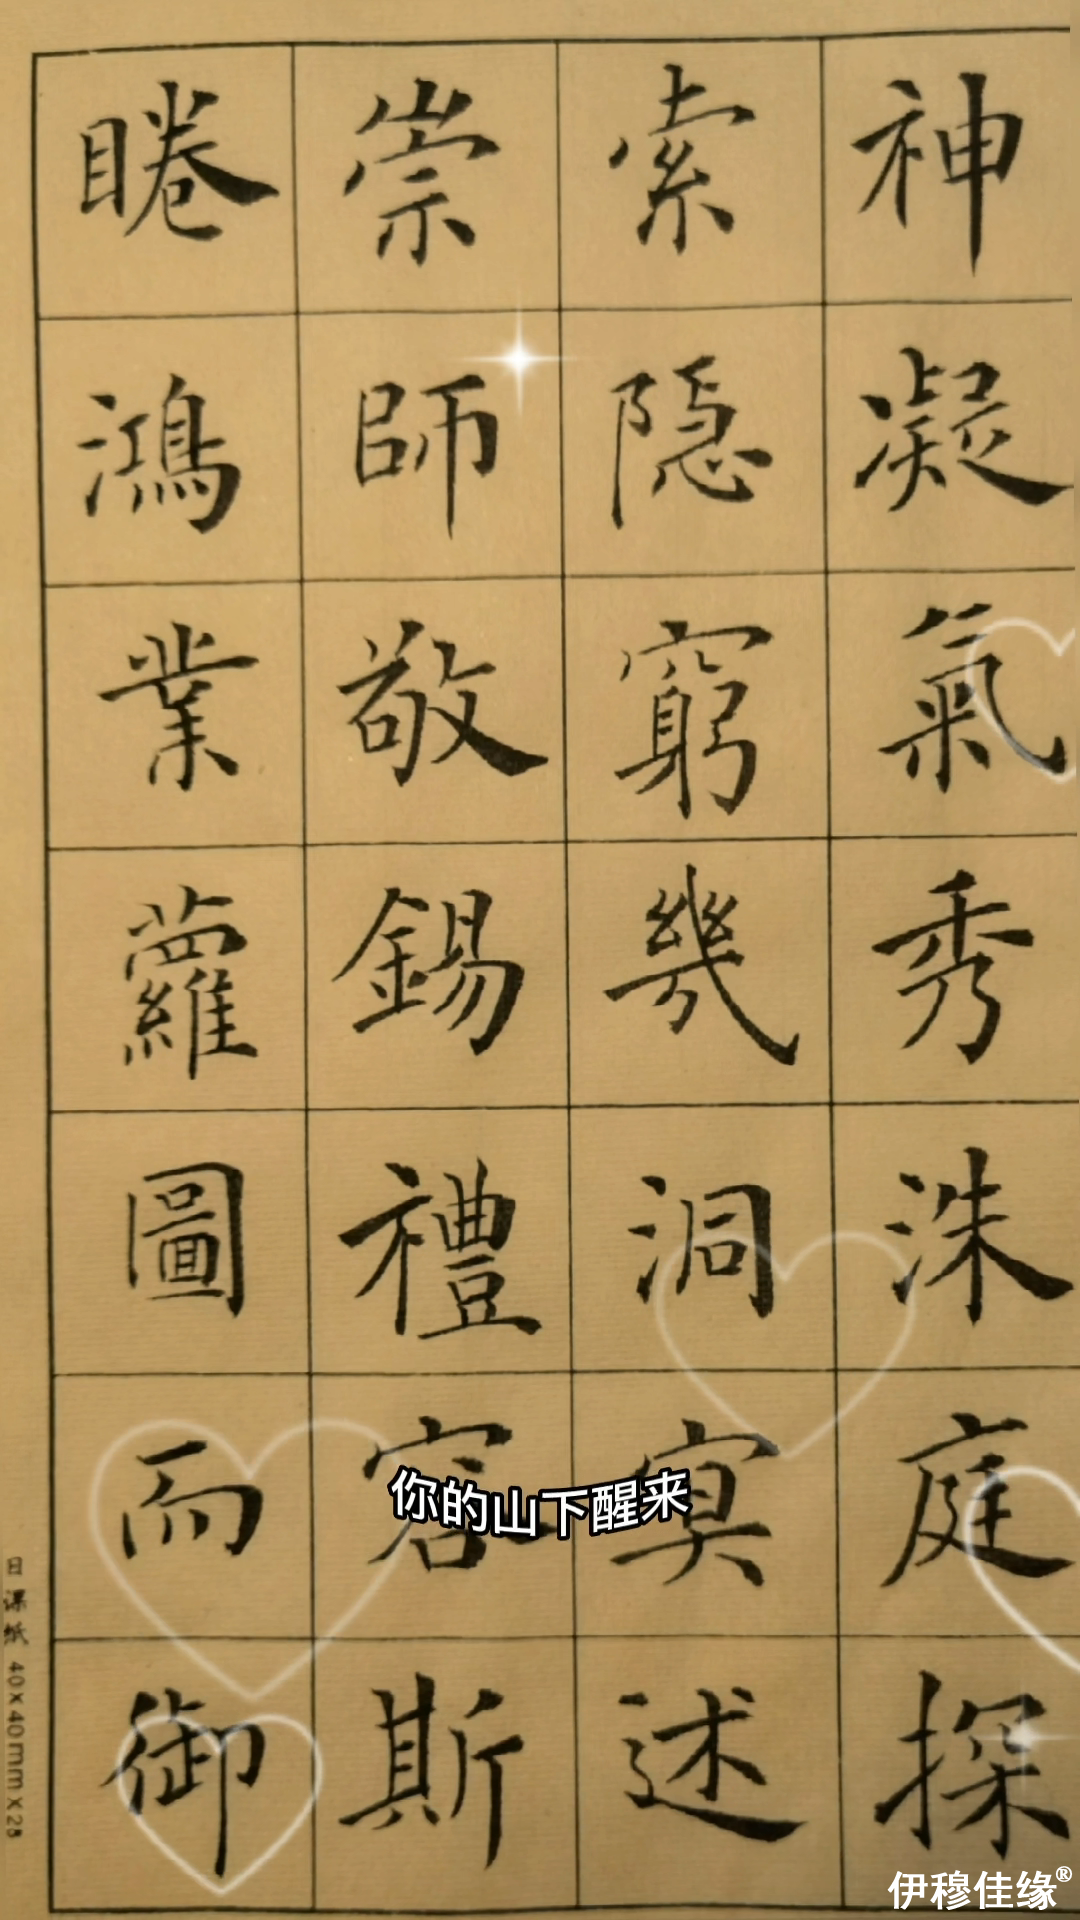 神凝氣秀洙庭探
索隱窮幾洞冥述
崇師敬錫禮容斯
睠鴻業蘿圖而御
你的山下醒来
日课纸 40×40mm×28
伊穆佳缘®